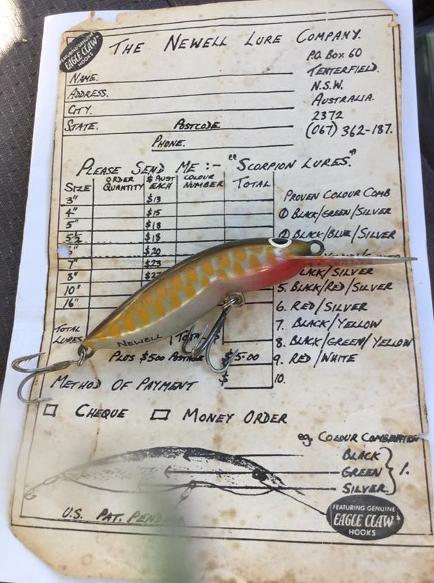 FEATURING GENUINE
EAGLE CLAW
HOOKS
THE NEWELL LURE COMPANY.
P.O. BOX 60
TENTERFIELD.
N.S.W.
AUSTRALIA.
2372
(067) 362-187.
NAME.
ADDRESS.
CITY.
STATE. POSTCODE
PHONE.
PLEASE SEND ME :- "SCORPION LURES."
SIZE ORDER QUANTITY $ AUST EACH COLOUR NUMBER TOTAL
3" $13
4" $15
5" $18
5½" $18
" $20
7" $23
8"
10"
16"
PROVEN COLOUR COMB
① BLACK/GREEN/SILVER
② BLACK/BLUE/SILVER
BLACK/SILVER
5. BLACK/RED/SILVER
6. RED/SILVER
7. BLACK/YELLOW
8. BLACK/GREEN/YELLOW
9. RED/WHITE
10.
NEWELL
TOTAL
LURES
PLUS $5.00 POSTAGE $5.00
METHOD OF PAYMENT $
CHEQUE MONEY ORDER
eg. COLOUR COMBINATION
BLACK
GREEN 1.
SILVER
U.S. PAT. PEND
FEATURING GENUINE
EAGLE CLAW
HOOKS